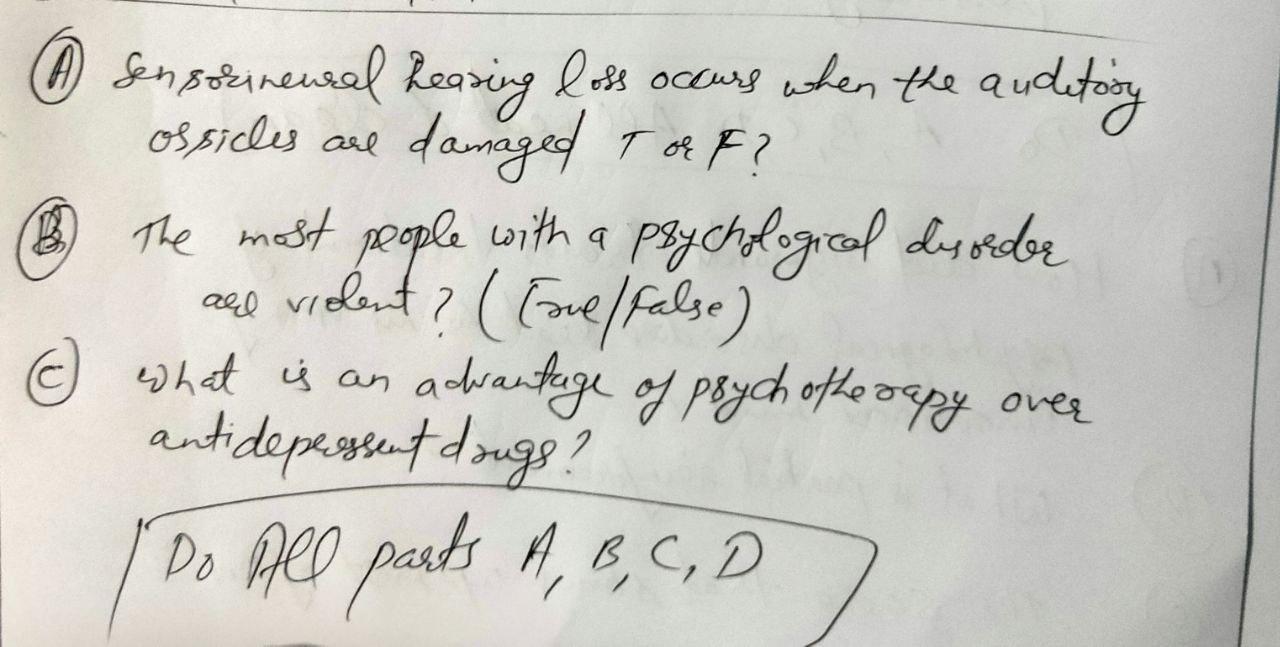 (A) Sensorineural hearing loss occurs when the auditory
ossicles are damaged T or F?
(B) The most people with a psychological disorder
are violent? (True/False)
(C) What is an advantage of psychotherapy over
antidepressent drugs?
Do All parts A, B, C, D